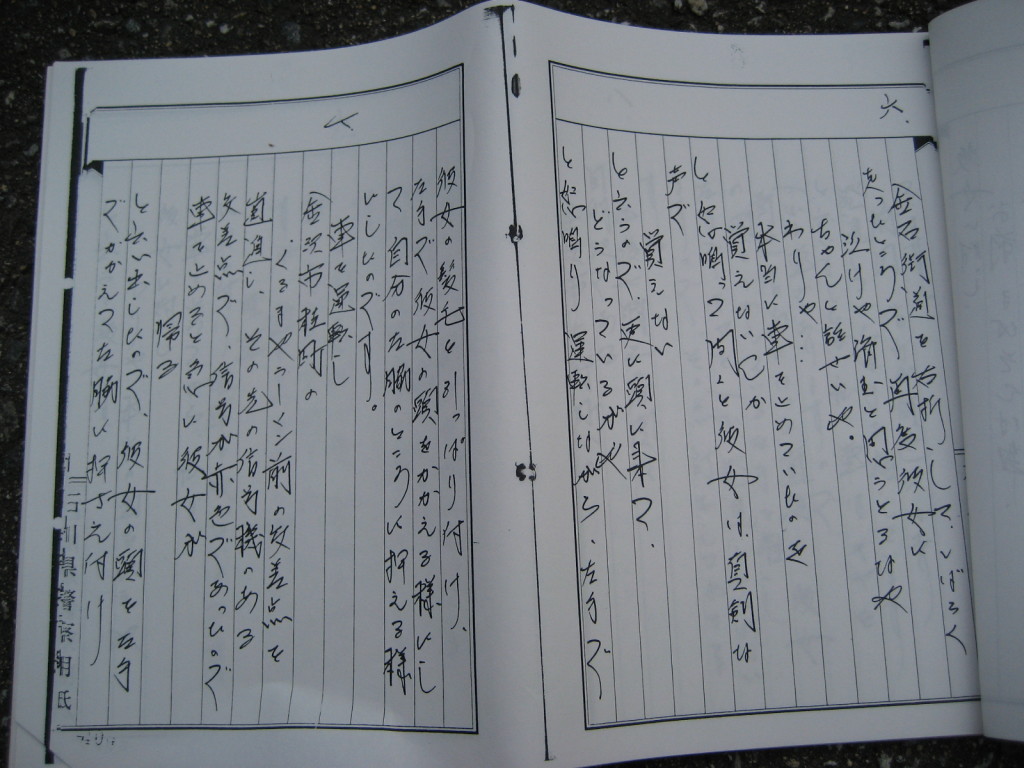 六
金石街道を右折して、しばらく
走ったところで、再度彼女に
泣けや済むと問うとるなや
ちゃんと話せいや。
わりゃ…
本当に車を止めていたのを
覚えないんか
と怒鳴って聞くと彼女は、真剣な
声で
覚えない
と云うので、更に頭に来て、
どうなっているがや
と怒鳴り運転しながら、左手で
七
彼女の髪毛を引っぱり付け、
左手で彼女の頭をかかえる様にし
て自分の左脇のところに押える様
にしたのです。
車を運転し
金沢市桂町の
くるまやラーメン前の交差点を
直進し、その先の信号機のある
交差点で、信号が赤色であったので
車を止めるときに彼女が
帰る
と云い出したので、彼女の頭を左手
でかかえて左脇に押さえ付け
石川県警察